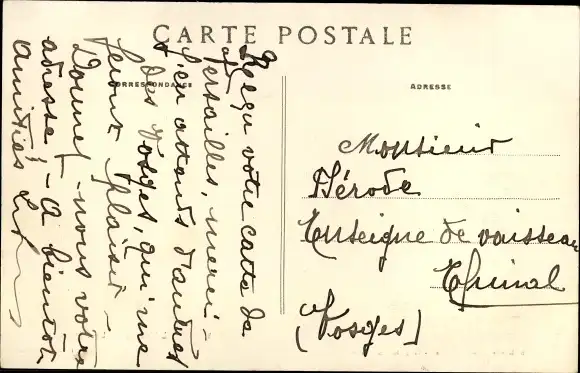 CARTE POSTALE
CORRESPONDANCE
ADRESSE
Reçu votre carte de
Versailles, merci –
J'en attends d'autres
des Vosges, qui me
feront plaisir –
Donnez-nous votre
adresse, – A bientôt
amitiés
Monsieur
Hérode
Enseigne de vaisseau
Epinal
(Vosges)